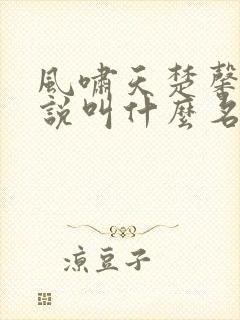 風嘯天楚馨
說叫什麼名
涼豆子